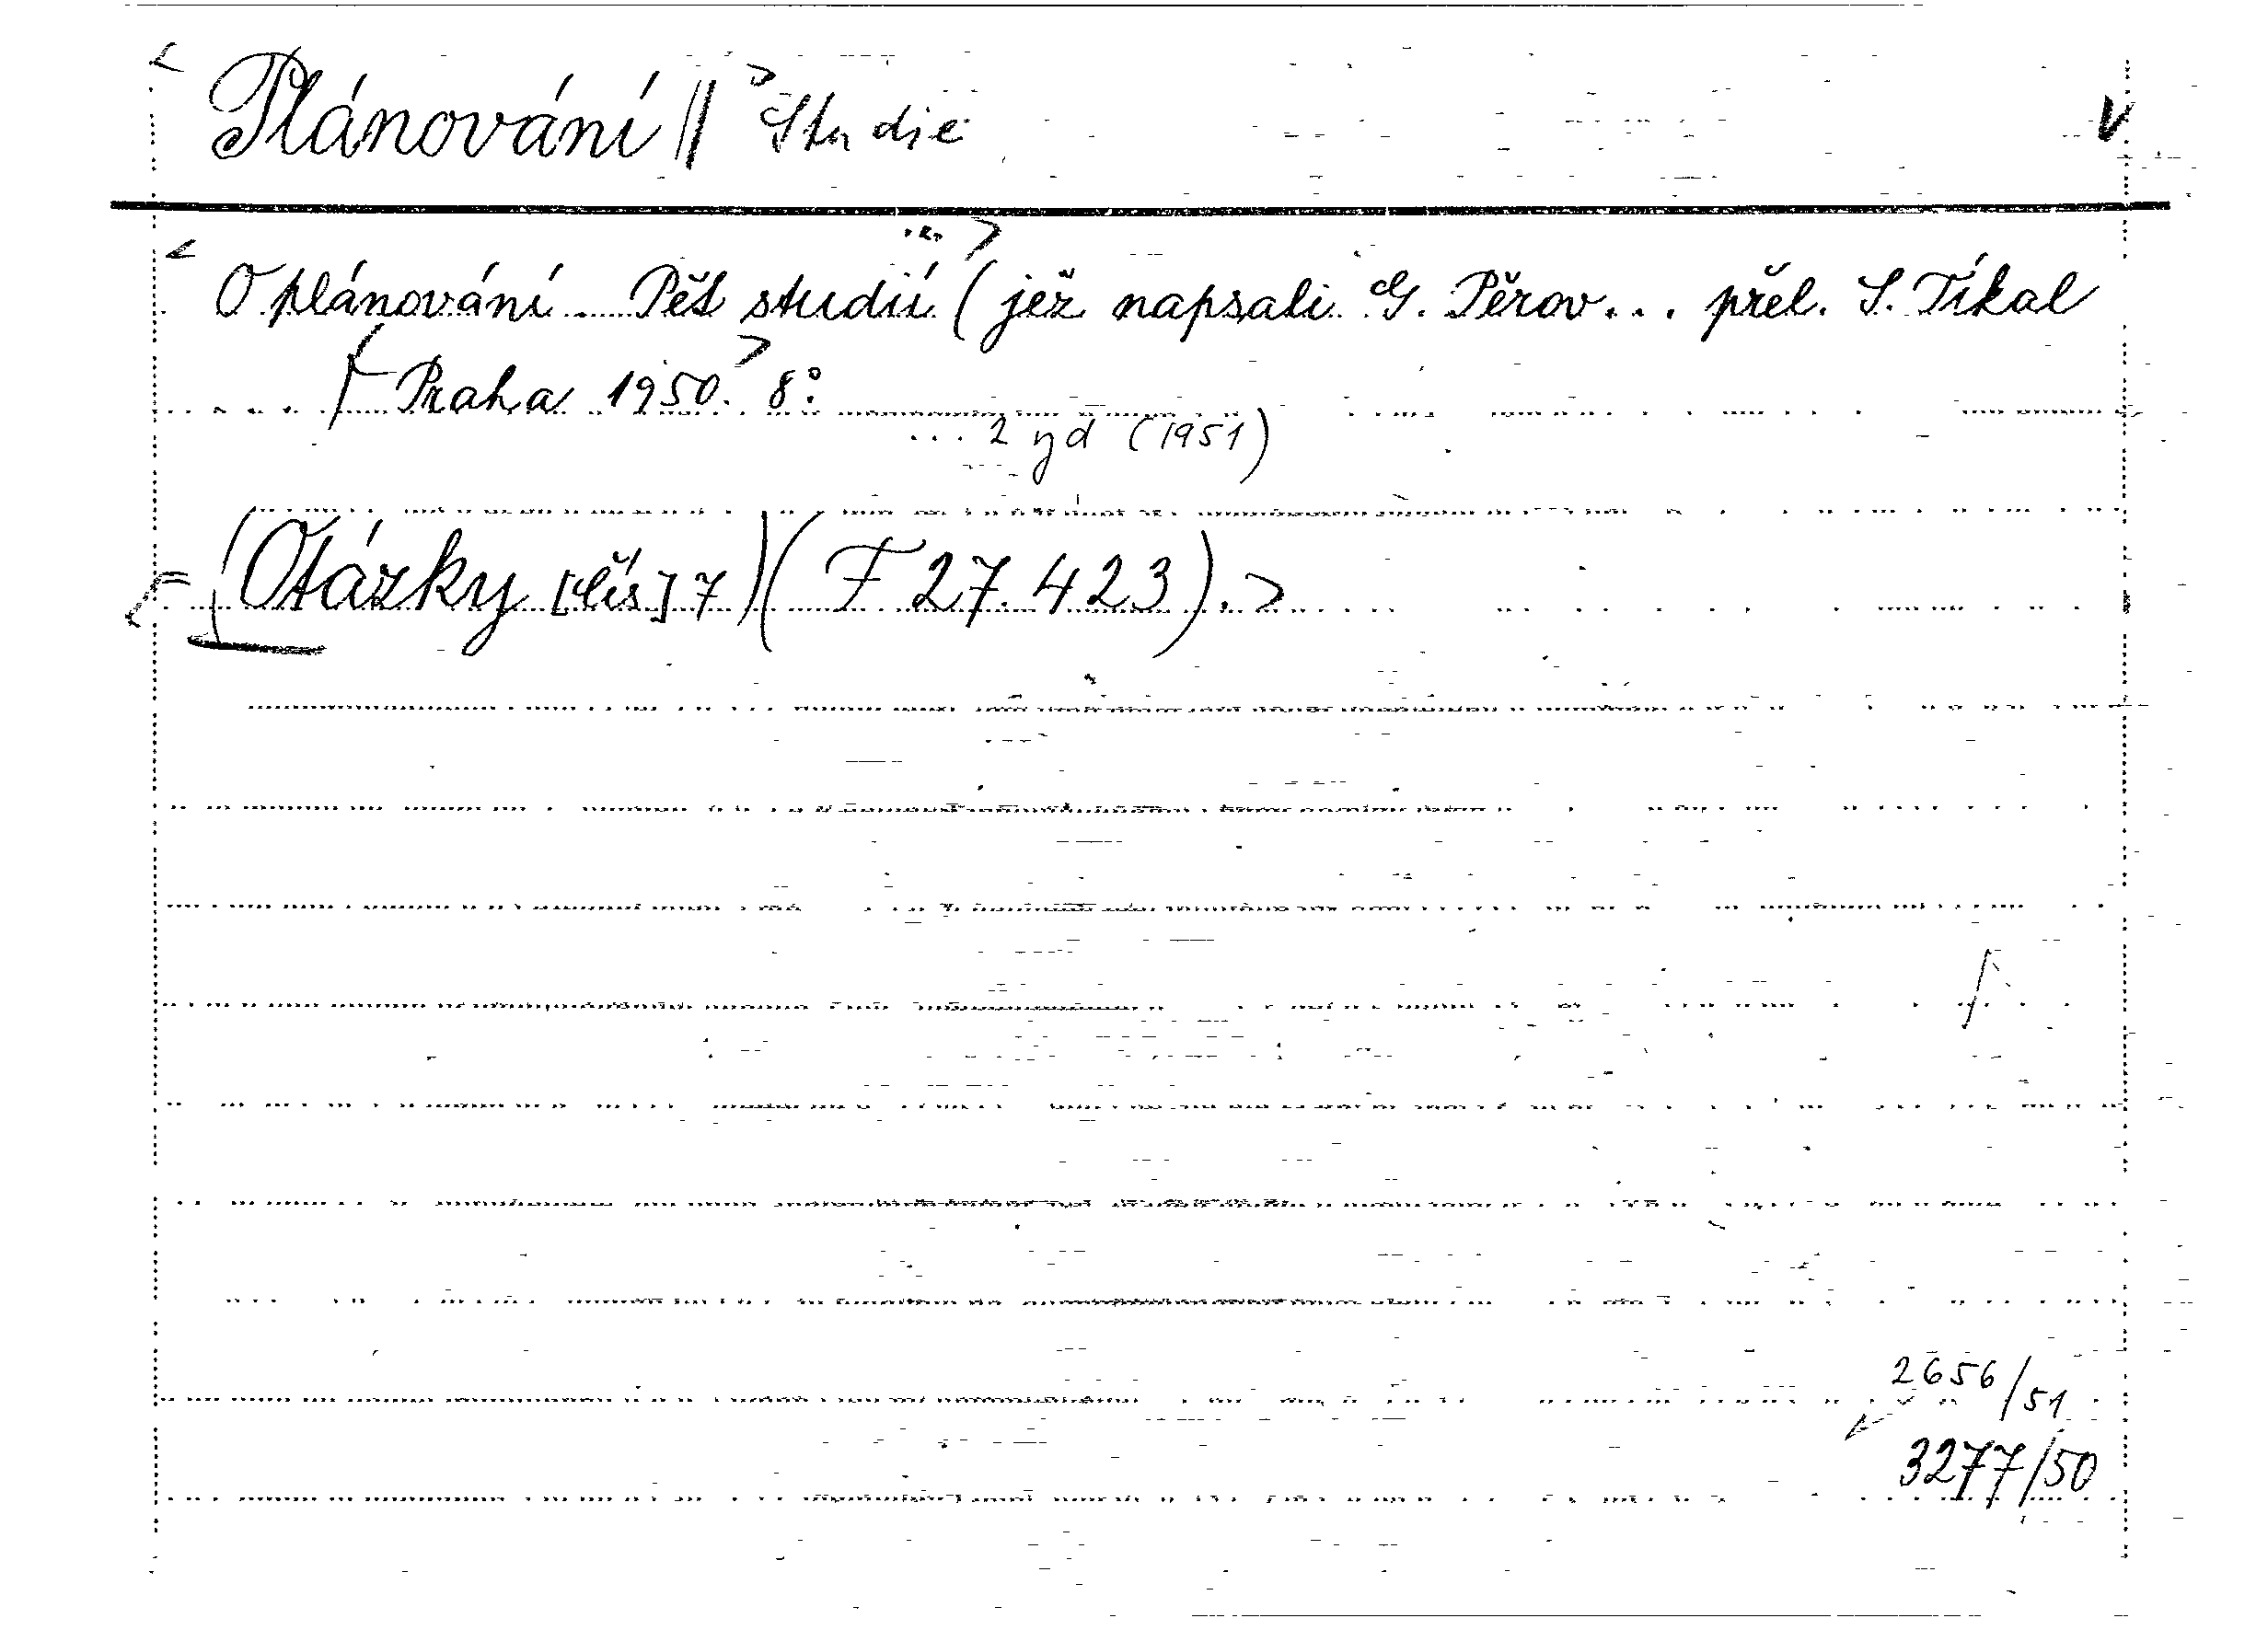 Plánování || Studie
O plánování. Pět studií (jež napsali G. Pěrov... přel. S. Tikal
Praha 1950. 8°.
... 2 yd (1951)
(Otázky [čís] 7) (F 27.423).
2656/51
3277/50